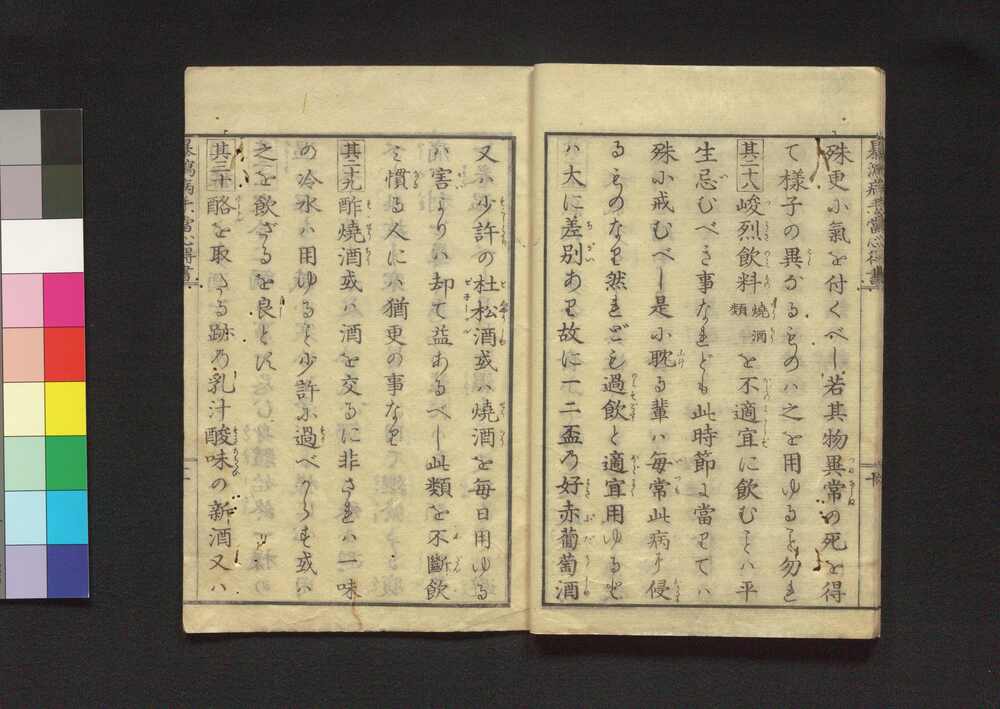 殊更小氣を付くべし若其物異常の死を得
て様子の異なるものハ之を用ゆること勿れ
其二十八峻烈飲料燒酒類を不適宜に飲むことハ平
生忌むべき事なれども此時節に當りてハ
殊小戒むべし是小耽る輩ハ毎常此病に侵
るゝものなり然れども過飲と適宜用ゆるとハ
大に差別あり故に一二盃の好赤葡萄酒
又ハ少許の杜松酒或ハ燒酒を毎日用ゆる
ハ害なり却て益あるべし此類を不斷飲
慣る人にハ猶更の事なり
其二十九酢燒酒或ハ酒を交るに非されハ一味
の冷水ハ用ゆること少許に過べからず或ハ
之を飲ざるを良とす
其三十酪を取たる跡の乳汁酸味の新酒又ハ